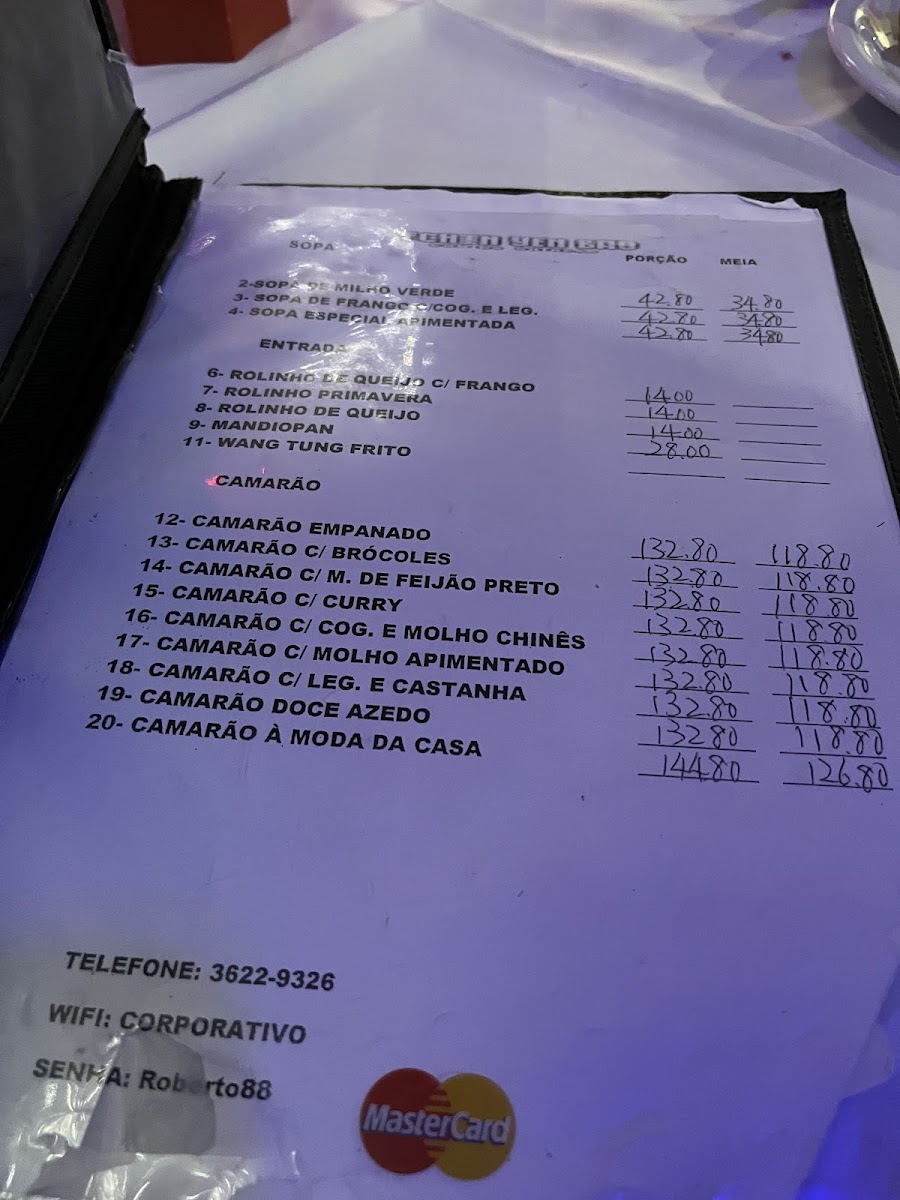 CHEN YEN
SOPA PORÇÃO MEIA
2-SOPA DE MILHO VERDE 42.80 34.80
3- SOPA DE FRANGO C/COG. E LEG. 42.80 34.80
4- SOPA ESPECIAL APIMENTADA 42.80 34.80
ENTRADA
6- ROLINHO DE QUEIJO C/ FRANGO 14.00
7- ROLINHO PRIMAVERA 14.00
8- ROLINHO DE QUEIJO 14.00
9- MANDIOPAN 28.00
11- WANG TUNG FRITO
CAMARÃO
12- CAMARÃO EMPANADO 132.80 118.80
13- CAMARÃO C/ BRÓCOLES 132.80 118.80
14- CAMARÃO C/ M. DE FEIJÃO PRETO 132.80 118.80
15- CAMARÃO C/ CURRY 132.80 118.80
16- CAMARÃO C/ COG. E MOLHO CHINÊS 132.80 118.80
17- CAMARÃO C/ MOLHO APIMENTADO 132.80 118.80
18- CAMARÃO C/ LEG. E CASTANHA 132.80 118.80
19- CAMARÃO DOCE AZEDO 132.80 118.80
20- CAMARÃO À MODA DA CASA 144.80 126.80
TELEFONE: 3622-9326
WIFI: CORPORATIVO
SENHA: Roberto88
MasterCard